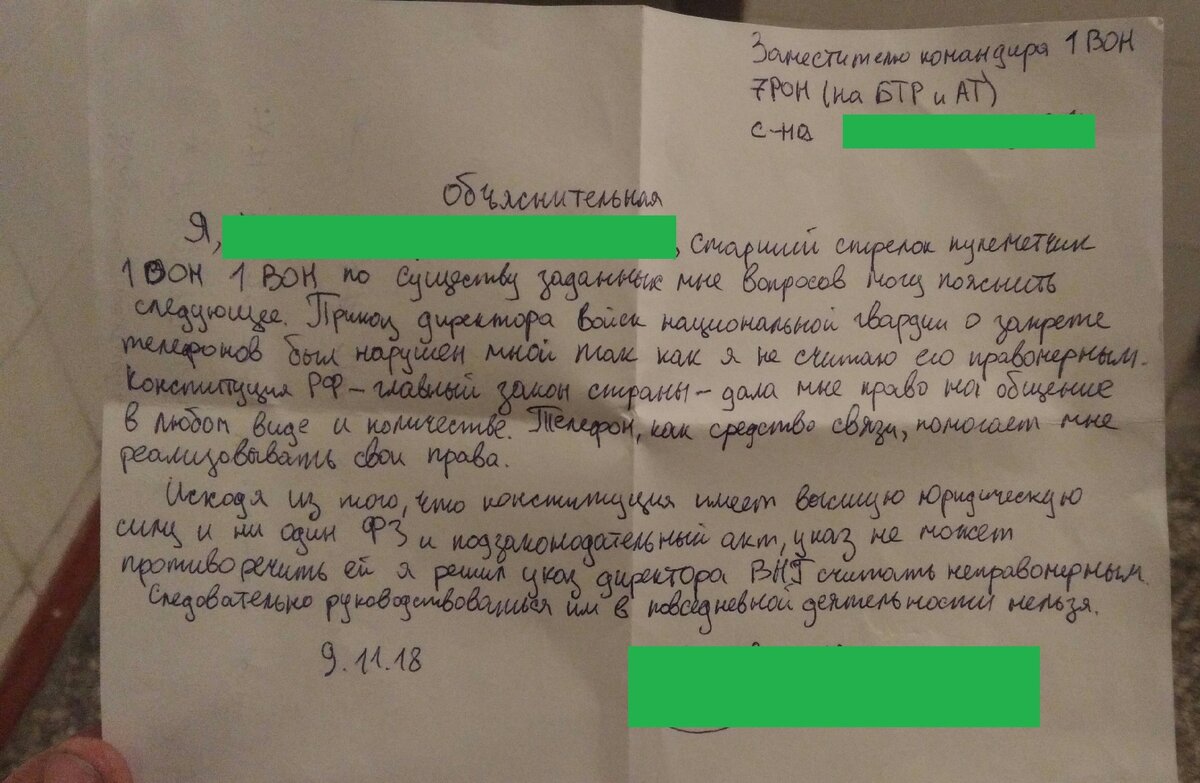 Заместителю командира 1 ВОН
7РОН (на БТР и АТ)
с-на
Объяснительная
Я, , старший стрелок пулеметчик
1 ВОН 1 ВОН по существу заданных мне вопросов могу пояснить
следующее. Приказ директора войск национальной гвардии о запрете
телефонов был нарушен мной так как я не считаю его правомерным.
Конституция РФ – главный закон страны – дала мне право на общение
в любом виде и количестве. Телефон, как средство связи, помогает мне
реализовывать свои права.
Исходя из того, что конституция имеет высшую юридическую
силу и ни один ФЗ и подзаконодательный акт, указ не может
противоречить ей я решил указ директора ВНГ считать неправомерным.
Следовательно руководствоваться им в повседневной деятельности нельзя.
9.11.18